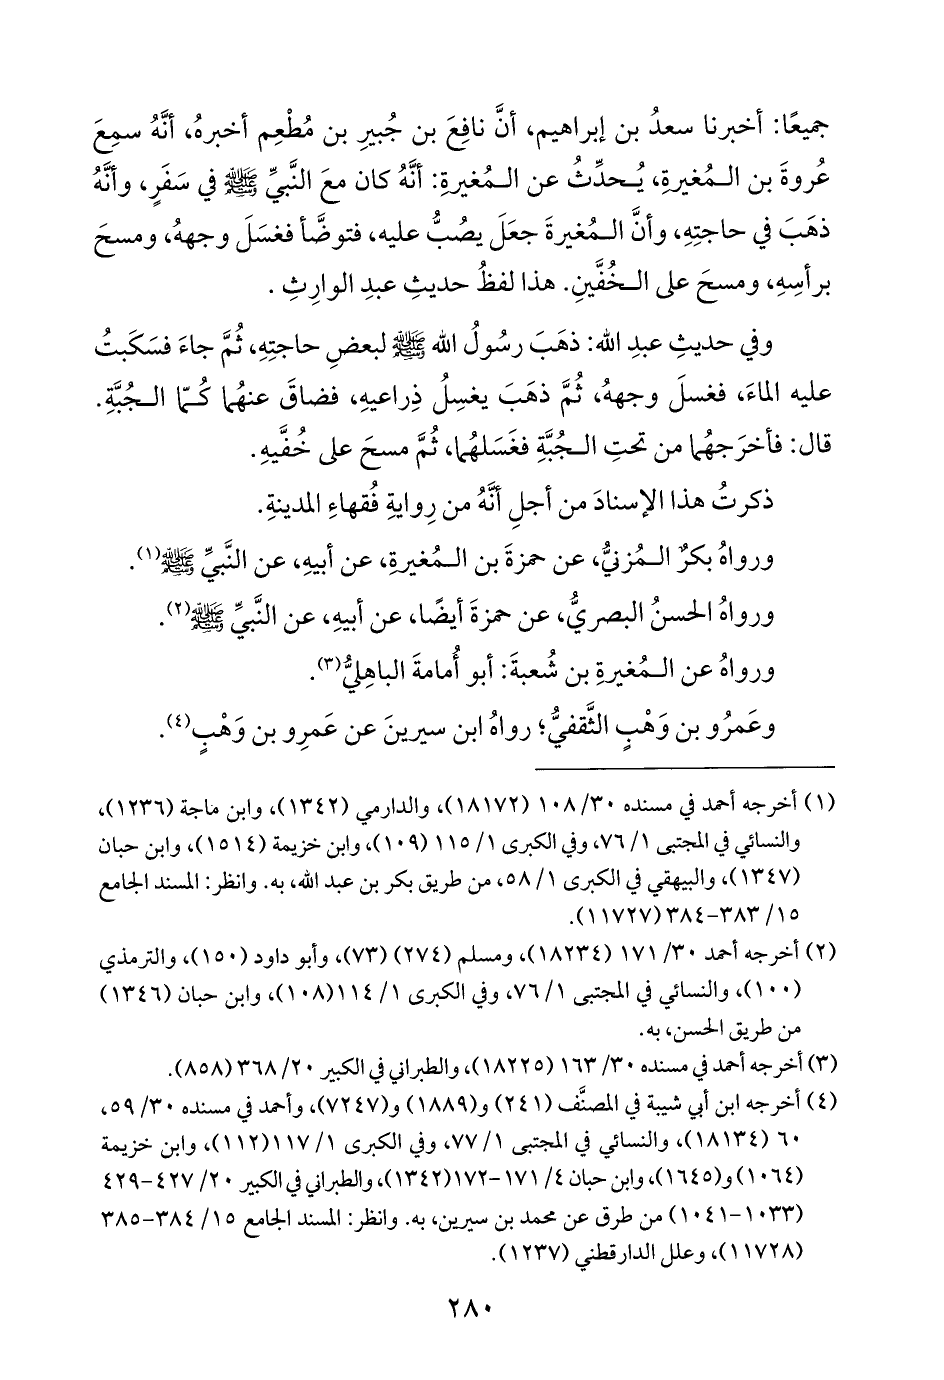 جميعًا: أخبرنا سعدُ بن إبراهيم، أنَّ نافِعَ بن جُبيرِ بن مُطْعِم أخبرهُ، أنَّهُ سمِعَ
عُروةَ بن الـمُغيرةِ، يُـحدِّثُ عن الـمُغيرةِ: أنَّهُ كان معَ النَّبيِّ ﷺ في سَفَرٍ، وأنَّهُ
ذهَبَ في حاجتِهِ، وأنَّ الـمُغيرةَ جعَلَ يصُبُّ عليه، فتوضَّأ فغسَلَ وجههُ، ومسحَ
برأسِهِ، ومسحَ على الـخُفَّينِ. هذا لفظُ حديثِ عبدِ الوارِثِ .
وفي حديثِ عبدِ الله: ذهَبَ رسُولُ الله ﷺ لبعضِ حاجتِهِ، ثُمَّ جاءَ فسَكَبتُ
عليه الماءَ، فغسلَ وجههُ، ثُمَّ ذهَبَ يغسِلُ ذِراعيهِ، فضاقَ عنهُما كُـمّا الـجُبَّةِ.
قال: فأخرَجهُما من تحتِ الـجُبَّةِ فغَسَلهُما، ثُمَّ مسحَ على خُفَّيهِ.
ذكرتُ هذا الإسنادَ من أجلِ أنَّهُ من رِوايةِ فُقهاءِ المدينةِ.
ورواهُ بكرٌ الـمُزنيُّ، عن حمزةَ بن الـمُغيرةِ، عن أبيهِ، عن النَّبيِّ ﷺ(١).
ورواهُ الحسنُ البصريُّ، عن حمزةَ أيضًا، عن أبيهِ، عن النَّبيِّ ﷺ(٢).
ورواهُ عن الـمُغيرةِ بن شُعبةَ: أبو أُمامةَ الباهِليُّ(٣).
وعَمرُو بن وَهْبٍ الثَّقفيُّ؛ رواهُ ابن سيرينَ عن عَمرِو بن وَهْبٍ(٤).
(١) أخرجه أحمد في مسنده ٣٠/ ١٠٨ (١٨١٧٢)، والدارمي (١٣٤٢)، وابن ماجة (١٢٣٦)،
والنسائي في المجتبى ١/ ٧٦، وفي الكبرى ١/ ١١٥ (١٠٩)، وابن خزيمة (١٥١٤)، وابن حبان
(١٣٤٧)، والبيهقي في الكبرى ١/ ٥٨، من طريق بكر بن عبد الله، به. وانظر: المسند الجامع
١٥/ ٣٨٣-٣٨٤ (١١٧٢٧).
(٢) أخرجه أحمد ٣٠/ ١٧١ (١٨٢٣٤)، ومسلم (٢٧٤) (٧٣)، وأبو داود (١٥٠)، والترمذي
(١٠٠)، والنسائي في المجتبى ١/ ٧٦، وفي الكبرى ١/ ١١٤(١٠٨)، وابن حبان (١٣٤٦)
من طريق الحسن، به.
(٣) أخرجه أحمد في مسنده ٣٠/ ١٦٣ (١٨٢٢٥)، والطبراني في الكبير ٢٠/ ٣٦٨ (٨٥٨).
(٤) أخرجه ابن أبي شيبة في المصنَّف (٢٤١) و(١٨٨٩) و(٧٢٤٧)، وأحمد في مسنده ٣٠/ ٥٩،
٦٠ (١٨١٣٤)، والنسائي في المجتبى ١/ ٧٧، وفي الكبرى ١/ ١١٧(١١٢)، وابن خزيمة
(١٠٦٤) و(١٦٤٥)، وابن حبان ٤/ ١٧١-١٧٢(١٣٤٢)، والطبراني في الكبير ٢٠/ ٤٢٧-٤٢٩
(١٠٣٣-١٠٤١) من طرق عن محمد بن سيرين، به. وانظر: المسند الجامع ١٥/ ٣٨٤-٣٨٥
(١١٧٢٨)، وعلل الدارقطني (١٢٣٧).
٢٨٠